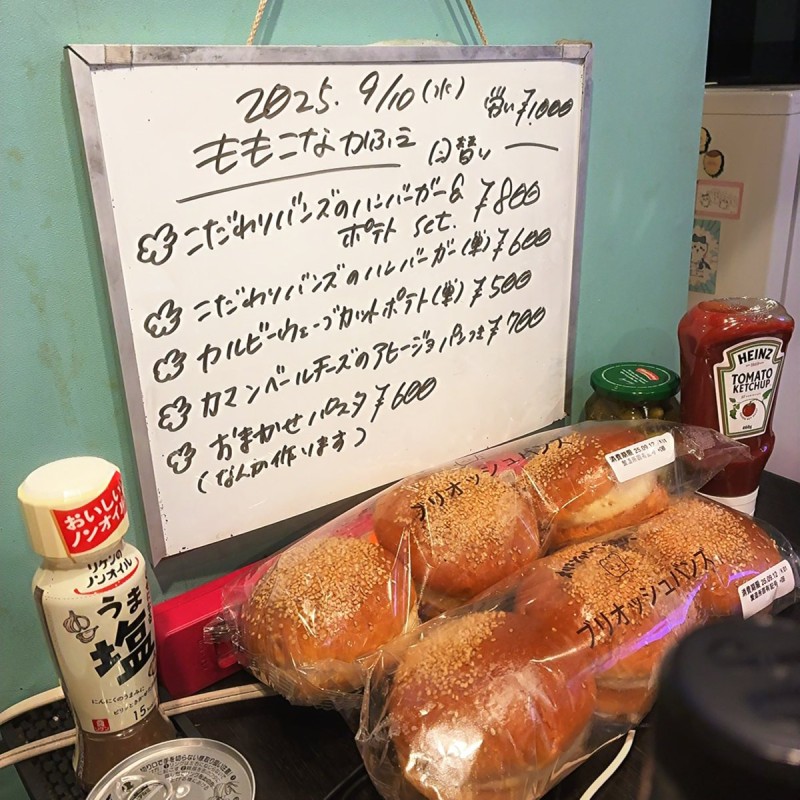 2025. 9/10 (水)
ももこなかふぇ 日替い
¥1,000
こだわりバンズのハンバーガー&
ポテト set. ¥800
こだわりバンズのハンバーガー(単) ¥600
カルビーウェーブカットポテト(単) ¥500
カマンベールチーズのアヒージョ パン付き ¥700
おまかせパスタ ¥600
(なんか作ります)
HEINZ
TOMATO
KETCHUP
ブリオッシュバンズ
消費期限 25.09.12
ブリオッシュバンズ
消費期限 25.09.12
おいしい
ノンオイル
リケンの
ノンオイル
うま
塩
にんにくのうまみに
切り口で手を切らない